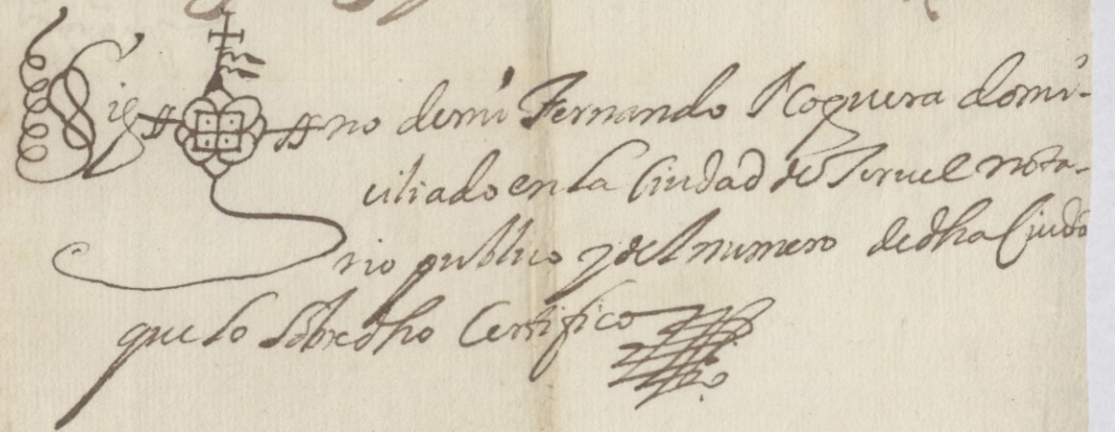 Sig no demi Fernando Noguera domi-
ciliado en la Ciudad de Teruel nota-
rio publico y del numero de dha Ciudd
que lo sobre dho Certifico